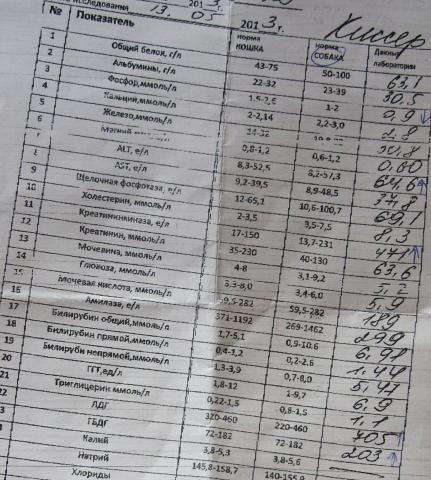 исследования 13. 05 2013г.
Киссер
№ Показатель норма КОШКА норма СОБАКА Данные лаборатории
1 Общий белок, г/л 43-75 50-100 63,1
2 Альбумины, г/л 22-32 23-39 30,5
3 Фосфор,ммоль/л 1,5-2,6 1-2 0,9 ↓
4 Кальций,ммоль/л 2-2,14 2,2-3,0 2,8
5 Железо,ммоль/л 14-32 30,8
6 Магний 0,8-1,2 0,6-1,2 0,80
7 ALT, е/л 8,3-52,5 8,2-57,3 64,6 ↑
8 AST, е/л 9,2-39,5 8,9-48,5 37,8
9 Щелочная фосфотаза, е/л 12-65,1 10,6-100,7 69,1
10 Холестерин, ммоль/л 2-3,5 3,5-7,5 8,3
11 Креатининкиназа, е/л 17-150 13,7-231 471 ↑
12 Креатинин, ммоль/л 35-230 40-130 63,6
13 Мочевина, ммоль/л 4-8 3,1-9,2 5,2
14 Глюкоза, ммоль/л 3,3-8,0 3,4-6,0 5,9
15 Мочевая кислота, ммоль/л 59,5-282 59,5-282 189
16 Амилаза, е/л 371-1192 269-1462 299
17 Билирубин общий,ммоль/л 1,7-5,1 0,9-10,6 6,91
18 Билирубин прямой,ммоль/л 0,4-1,2 0,2-2,6 1,44
19 Билируби непрямой,ммоль/л 1,3-3,9 0,7-8,0 5,47
20 ГГТ,ед/л 1,8-12 1-9,7 6,9
21 Триглицерин ммоль/л 0,22-1,5 0,8-1,5 1,1
22 ЛДГ 320-460 220-460 705 ↑
3 ГБДГ 72-182 72-182 203 ↑
4 Калий 3,8-5,3 3,8-5,6
Натрий 145,8-158,7 140-155,9
Хлориды